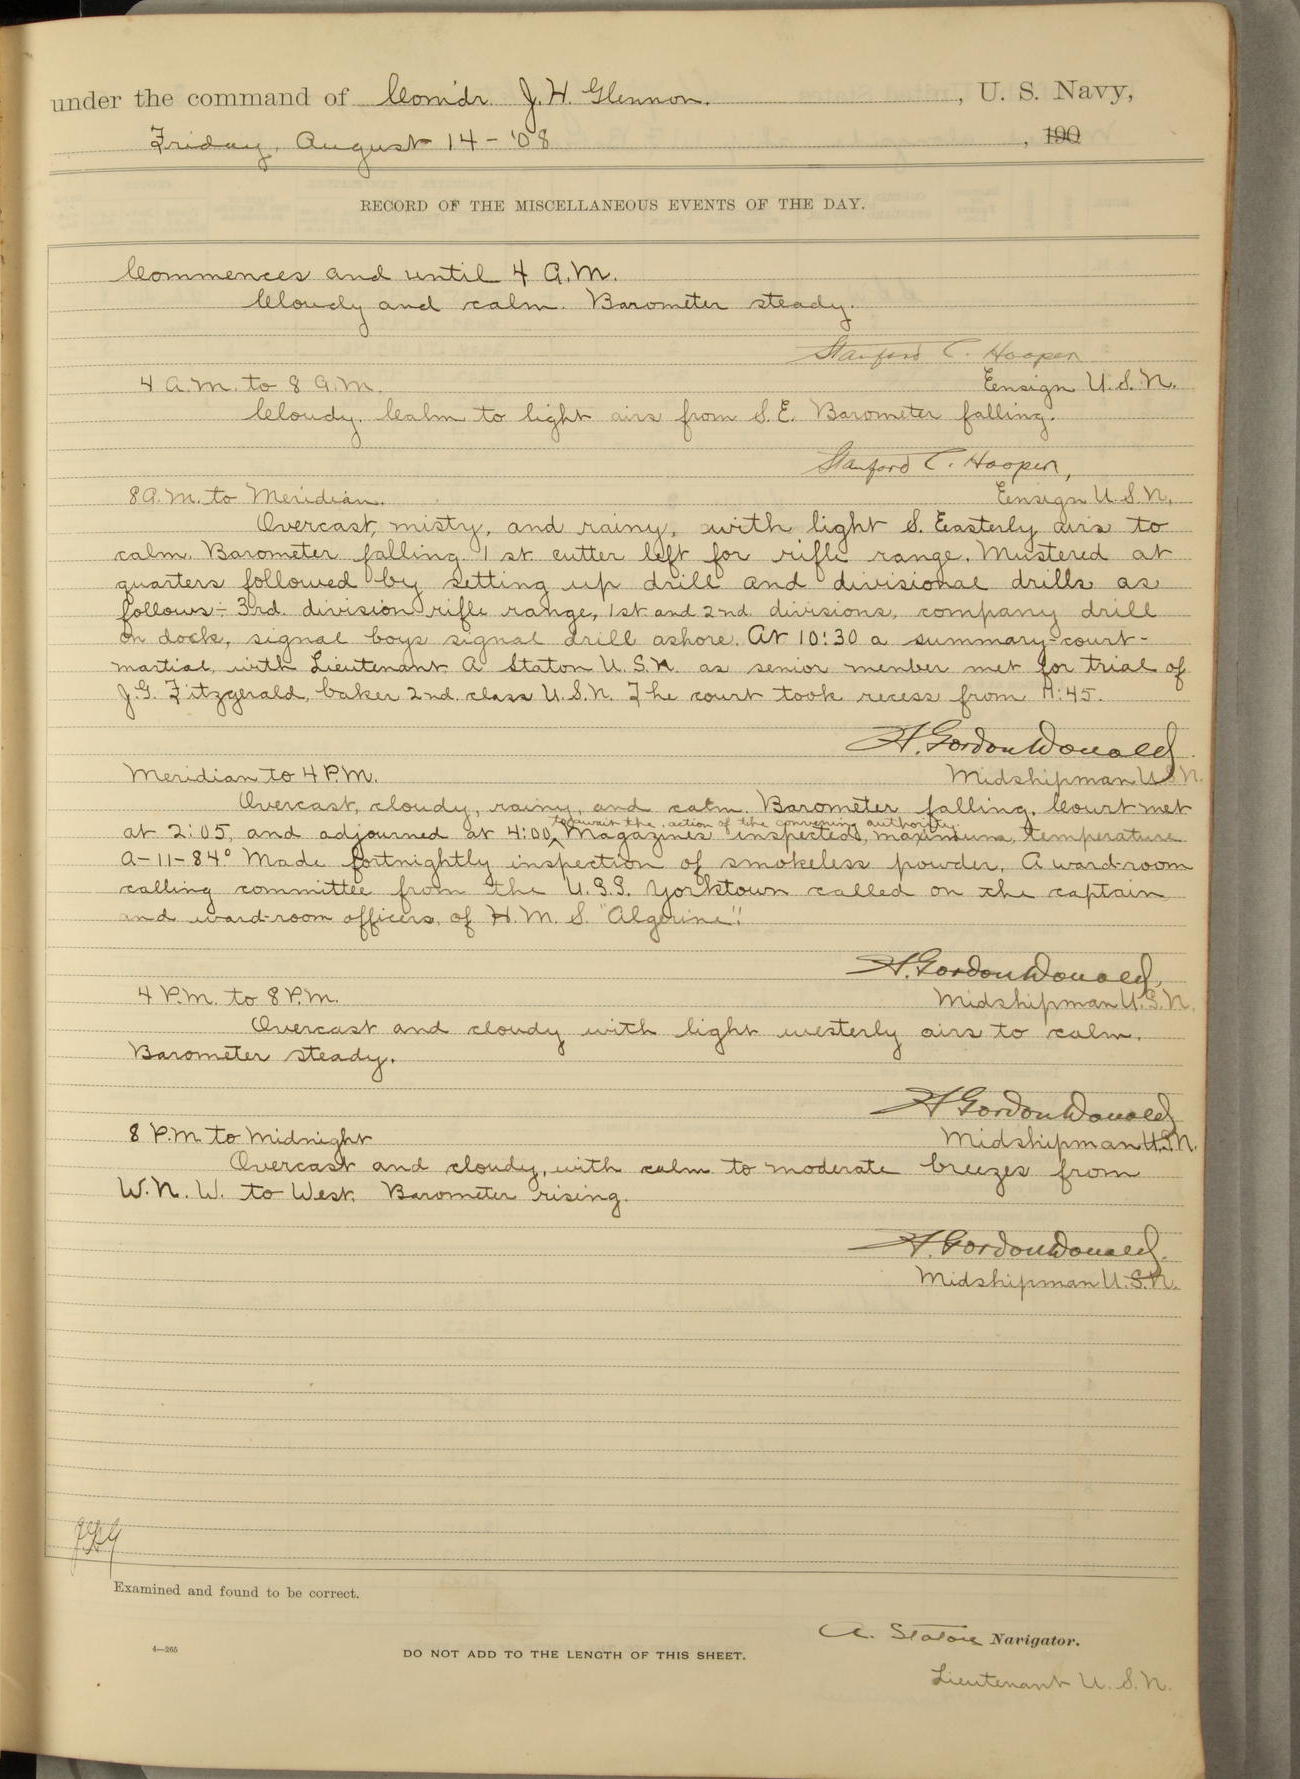 under the command of Comdr. J. H. Glennon. , U. S. Navy,
Friday, August 14 - '08 , 190
RECORD OF THE MISCELLANEOUS EVENTS OF THE DAY.
Commences and until 4 A.M.
Cloudy and calm. Barometer steady.
Stanford C. Hooper
4 A.M. to 8 A.M. Ensign U.S.N.
Cloudy. Calm to light airs from S.E. Barometer falling.
Stanford C. Hooper,
8 A.M. to Meridian. Ensign U.S.N.
Overcast, misty, and rainy, with light S. Easterly airs to
calm. Barometer falling. 1st cutter left for rifle range. Mustered at
quarters followed by setting up drill and divisional drills as
follows:- 3rd. division rifle range, 1st and 2nd divisions, company drill
on dock, signal boys signal drill ashore. At 10:30 a summary-court-
martial, with Lieutenant A Staton U.S.N. as senior member met for trial of
J.G. Fitzgerald, baker 2nd. class U.S.N. The court took recess from 11:45.
H. Gordon Donald
Meridian to 4 P.M. Midshipman U.S.N.
Overcast, cloudy, rainy, and calm. Barometer falling. Court met
to await the action of the convening authority.
at 2:05, and adjourned at 4:00, Magazines inspected, maximum, temperature
A-11-84° Made fortnightly inspection of smokeless powder. A ward-room
calling committee from the U.S.S. Yorktown called on the captain
and ward-room officers, of H.M.S. "Algerine".
H. Gordon Donald,
4 P.M. to 8 P.M. Midshipman U.S.N.
Overcast and cloudy with light westerly airs to calm.
Barometer steady.
H Gordon Donald
8 P.M. to Midnight Midshipman U.S.N.
Overcast and cloudy, with calm to moderate breezes from
W.N.W. to West. Barometer rising.
H. Gordon Donald.
Midshipman U.S.N.
Examined and found to be correct.
A. Staton Navigator.
4—265 DO NOT ADD TO THE LENGTH OF THIS SHEET.
Lieutenant U.S.N.